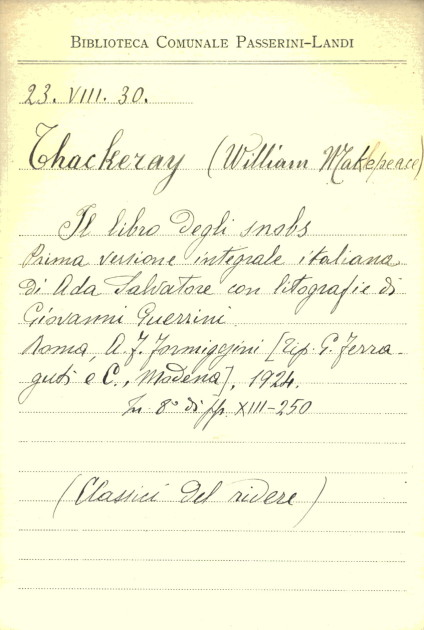 BIBLIOTECA COMUNALE PASSERINI-LANDI
23. VIII. 30.
Thackeray (William Makepeace)
Il libro degli snobs
Prima versione integrale italiana
di Ada Salvatore con litografie di
Giovanni Guerrini
Roma, A. F. Formiggini [Tip. G. Ferra-
guti e C., Modena], 1924.
In 8° di pp. XIII-250
(Classici del ridere)